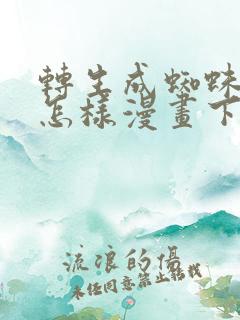 轉生成蜘蛛
怎樣漫畫下
流浪的傷
未经同意禁止转载